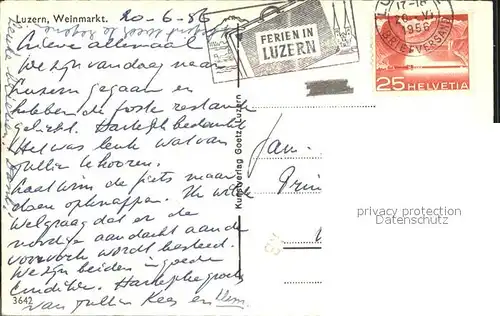 Luzern, Weinmarkt. 20-6-56
Lieve allemaal
We zijn vandaag naar
Luzern gegaan en
hebben de poste restante
gelicht. Hartelijk bedankt
Het was leuk wat van
jullie te horen.
Laat Wim de fiets maar
doen opknappen. Ik wilde
Welgraag dat er de
nodige aandacht aan de
voorvork wordt besteed.
We zijn beiden in goede
Conditie. Hartelijke groeten
van jullie Kees en Wim.
3642
Kunstverlag Goetz, Luzern
FERIEN IN
LUZERN
17-18
20.VI.
1956
BRIEFVERSAND
25 HELVETIA
Fam.
Prin
privacy protection
Datenschutz